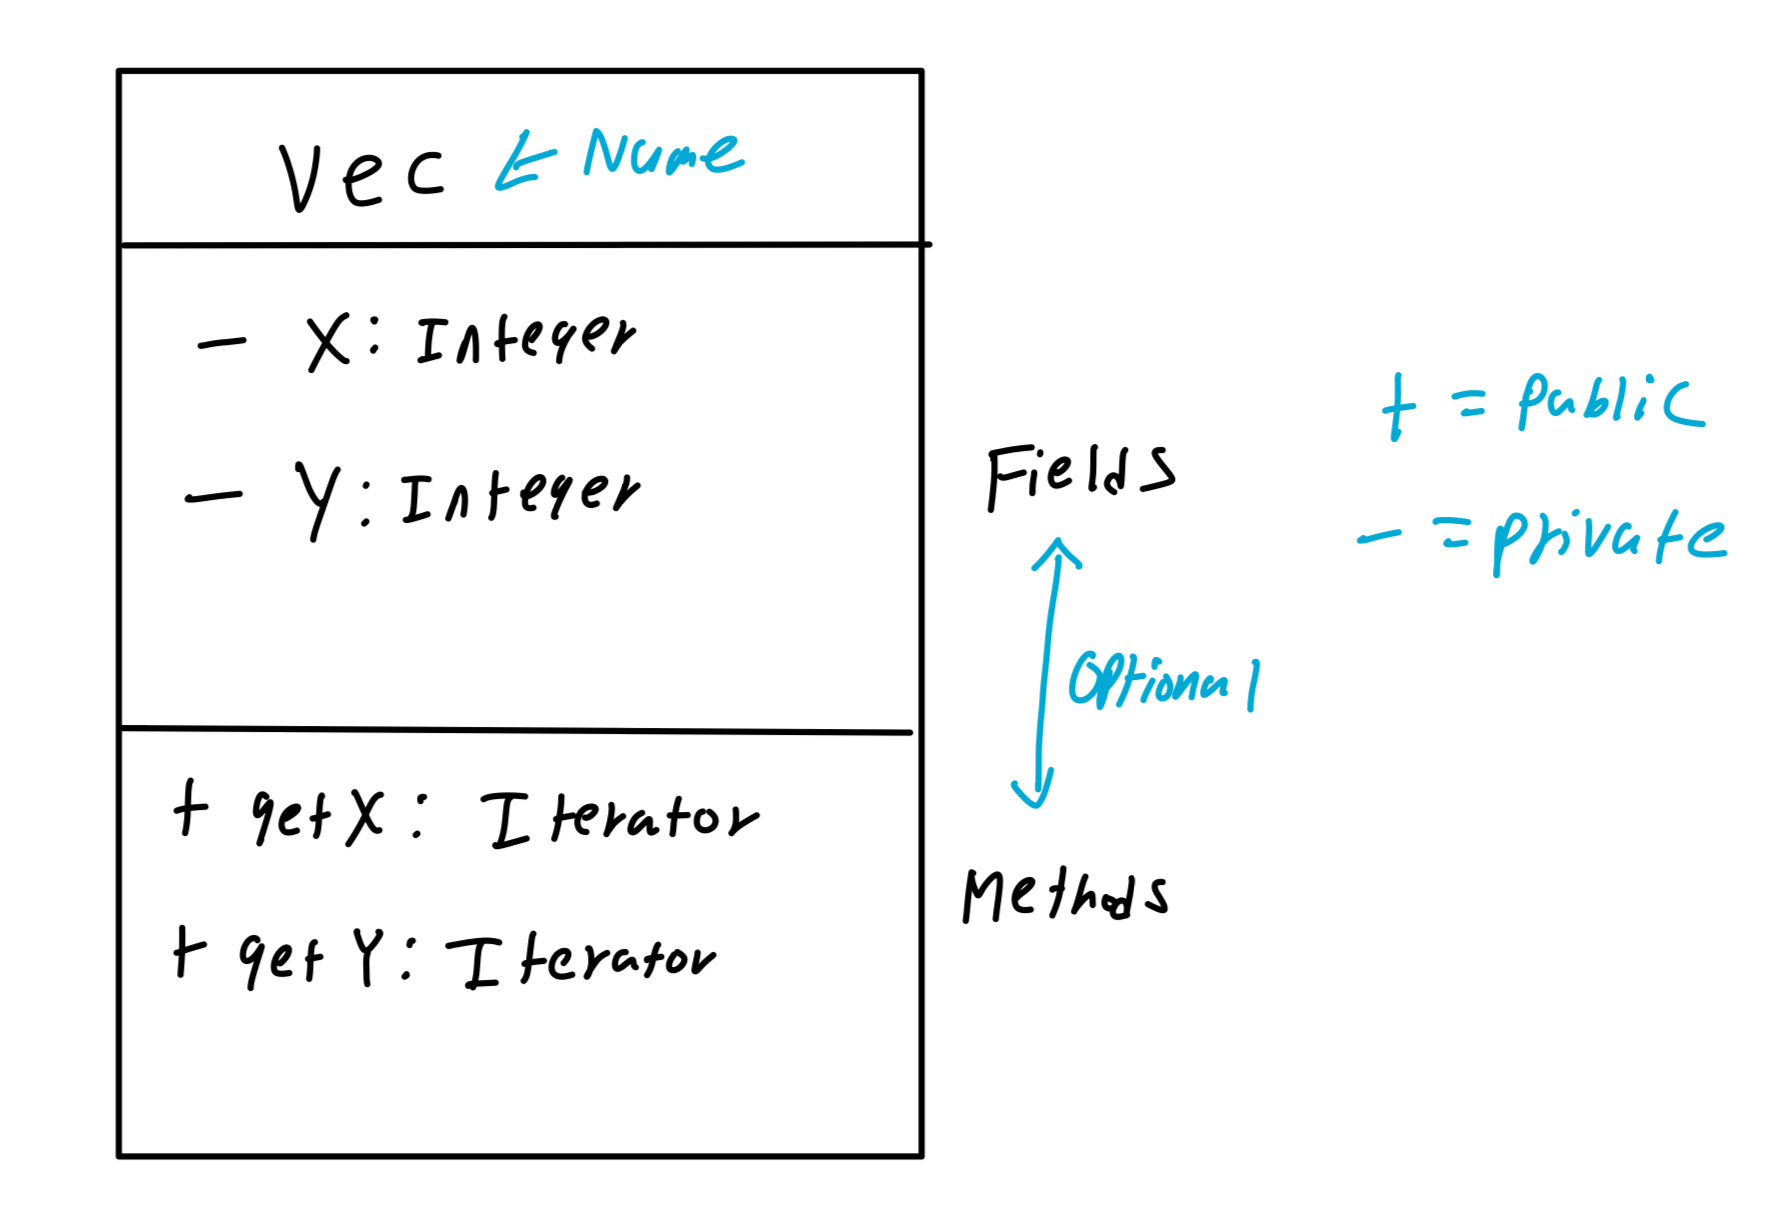 Vec ← Name
- X: Integer
- Y: Integer
+ getX: Iterator
+ getY: Iterator
Fields
Optional
Methods
+ = public
- = private